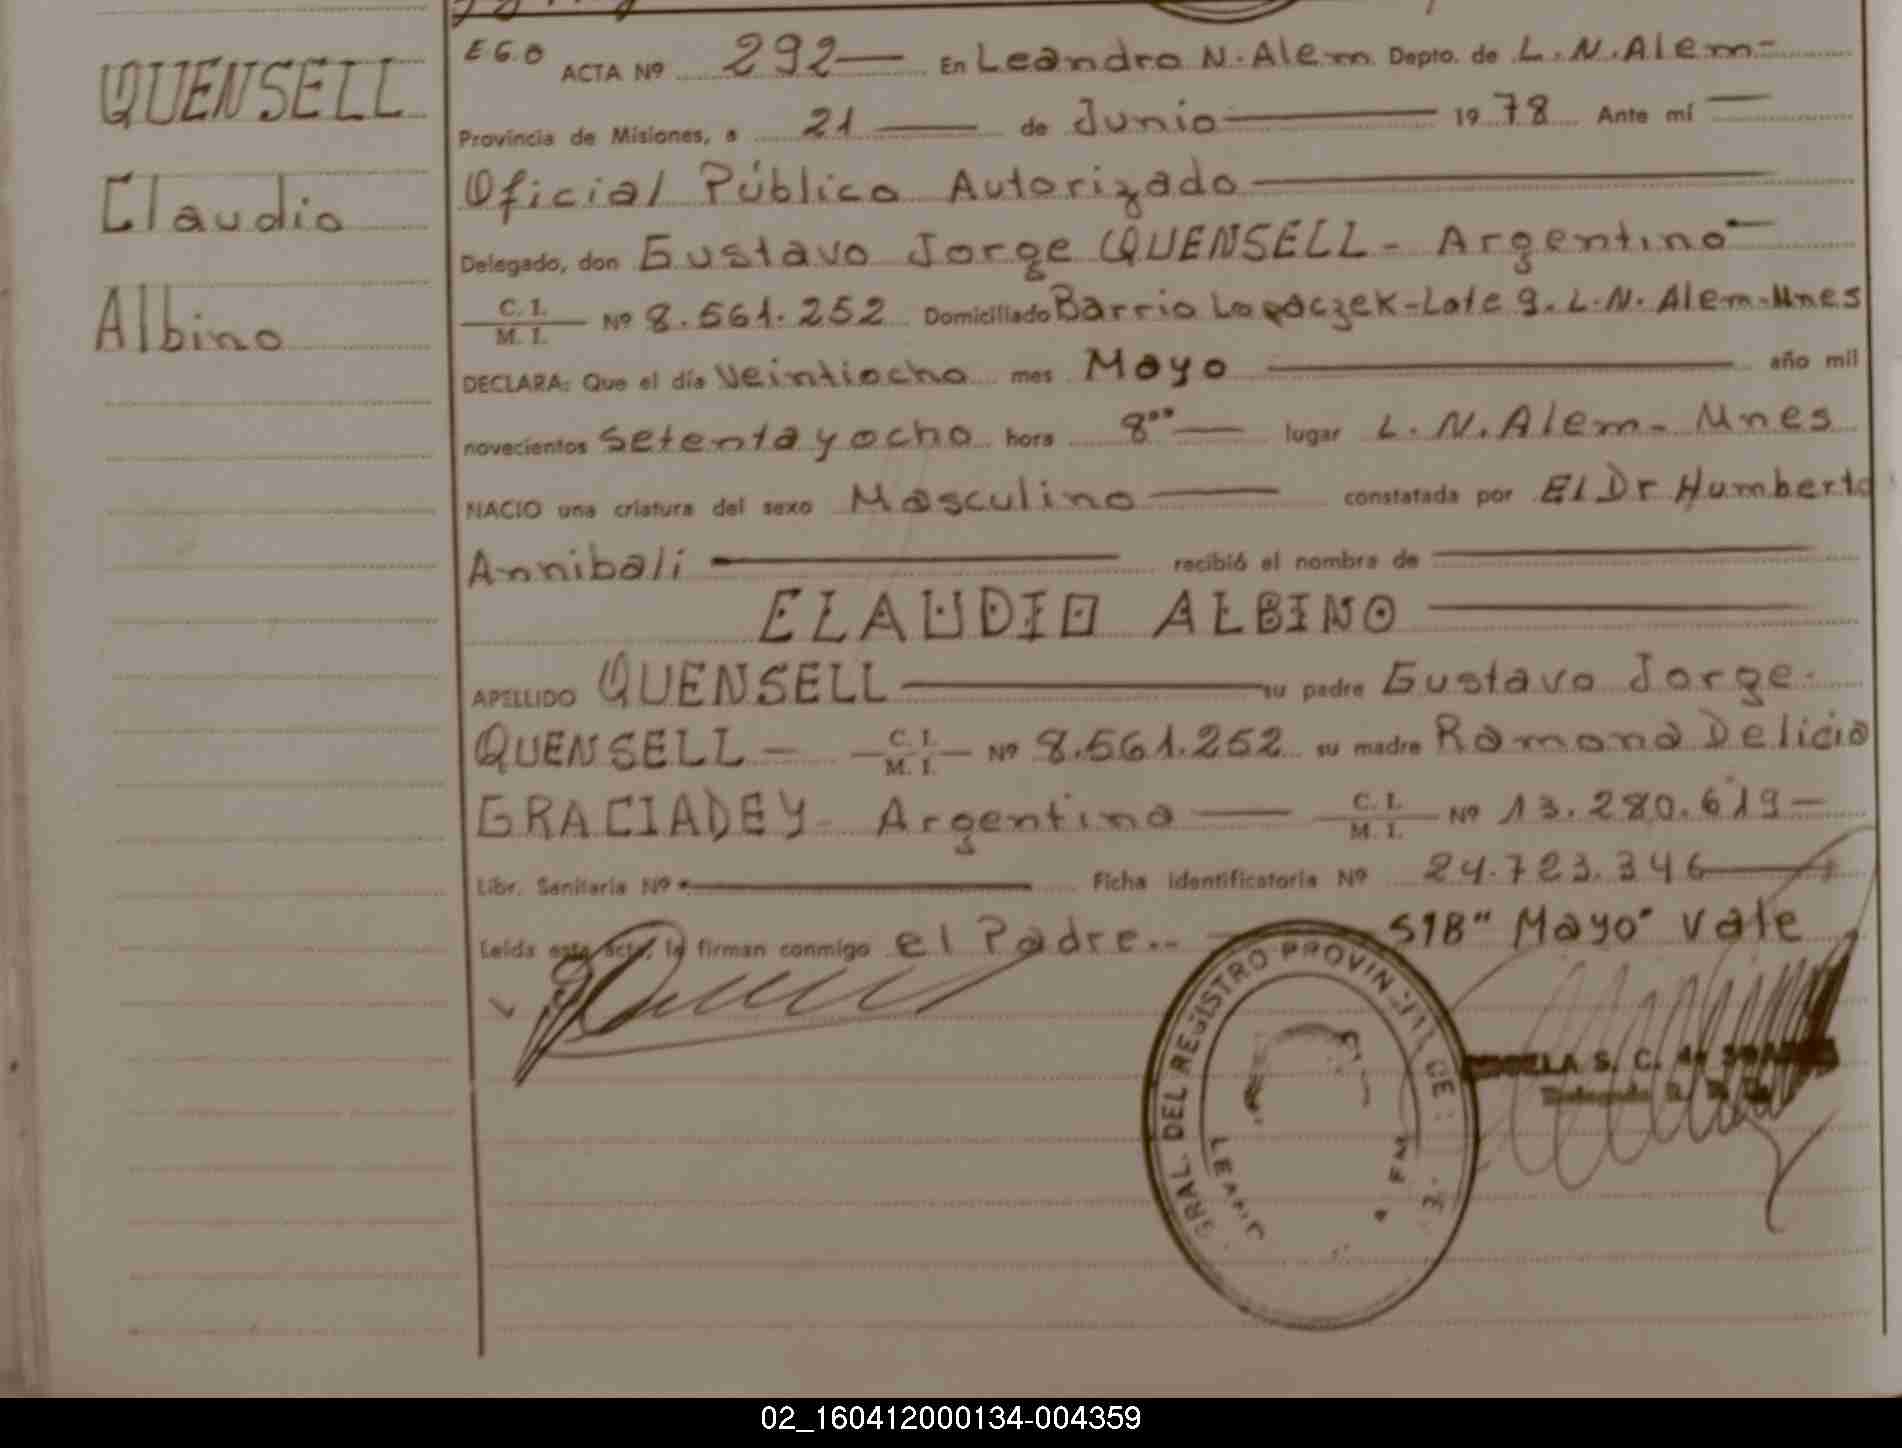 QUENSELL
Claudio
Albino
E G.O ACTA Nº 292 — En Leandro N. Alem Depto. de L. N. Alem-
Provincia de Misiones, a 21 — de Junio — 1978 Ante mí —
Oficial Público Autorizado —
Delegado, don Gustavo Jorge QUENSELL - Argentino —
C. I. / M. I. Nº 8.561.252 Domiciliado Barrio Lopaczek-Lote 9. L. N. Alem-Mnes
DECLARA: Que el día Veintiocho mes Mayo — año mil
novecientos Setenta y ocho hora 8°° — lugar L. N. Alem - Mnes
NACIO una criatura del sexo Masculino — constatada por El Dr Humberto
Annibali — recibió el nombre de —
CLAUDIO ALBINO —
APELLIDO QUENSELL — su padre Gustavo Jorge-
QUENSELL - C. I. / M. I. Nº 8.561.252 su madre Ramona Delicia
GRACIADEY - Argentina — C. I. / M. I. Nº 13.280.619 —
Libr. Sanitaria Nº — Ficha Identificatoria Nº 24.723.346 —
Leída este acta, la firman conmigo el Padre.. — S/B "Mayo" Vale
GRAL. DEL REGISTRO PROVINCIAL DE
S. C. de
Delegada
02_160412000134-004359